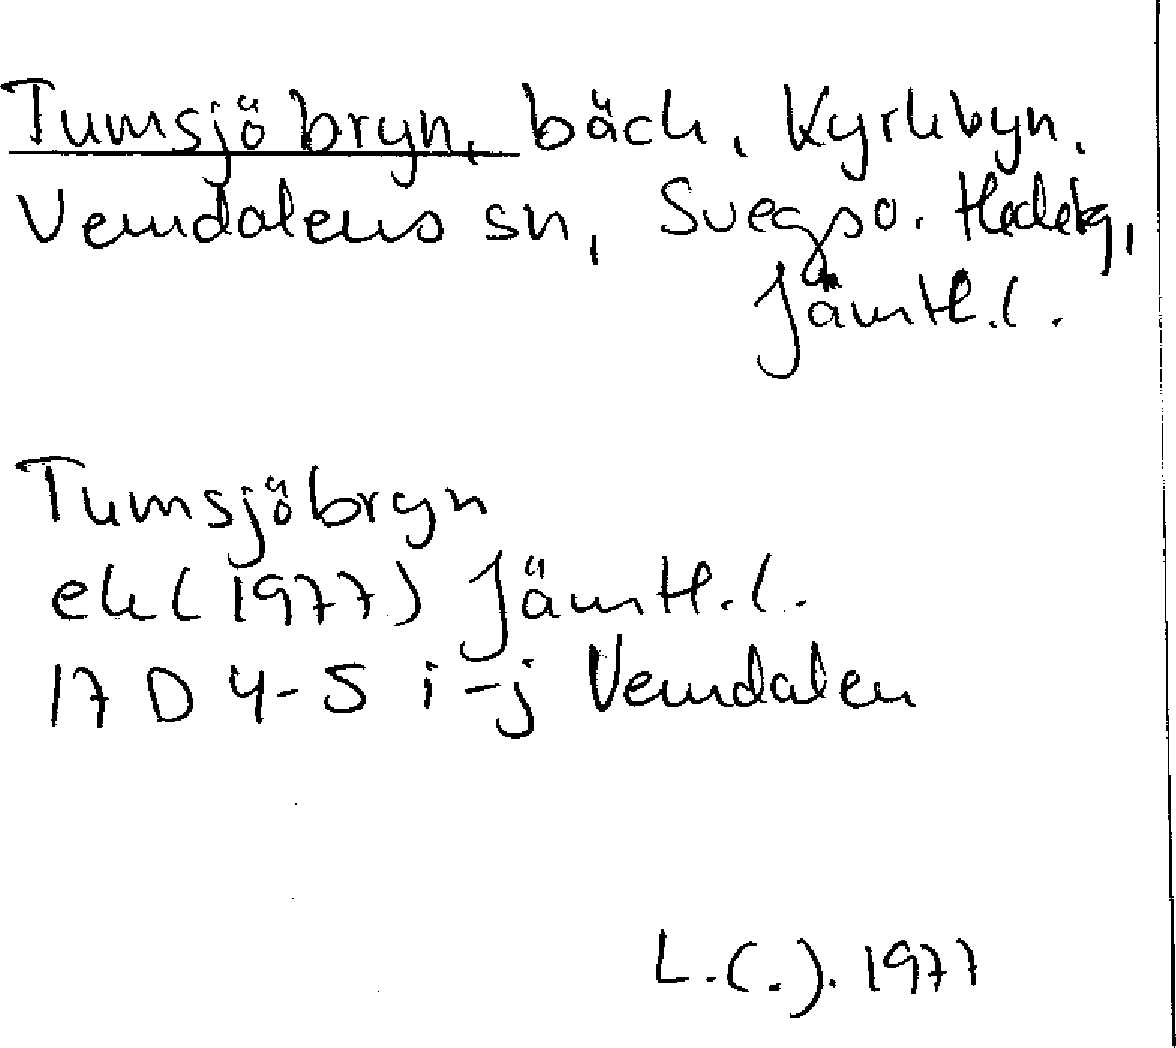 Tumsjöbryn, bäck, Kyrkbyn,
Vemdalens sn, Svegs o. Hedebg,
Jämtl.l.
Tumsjöbryn
ek (1977) Jämtl.l.
17 D 4-5 i-j Vemdalen
L.(.). 1977